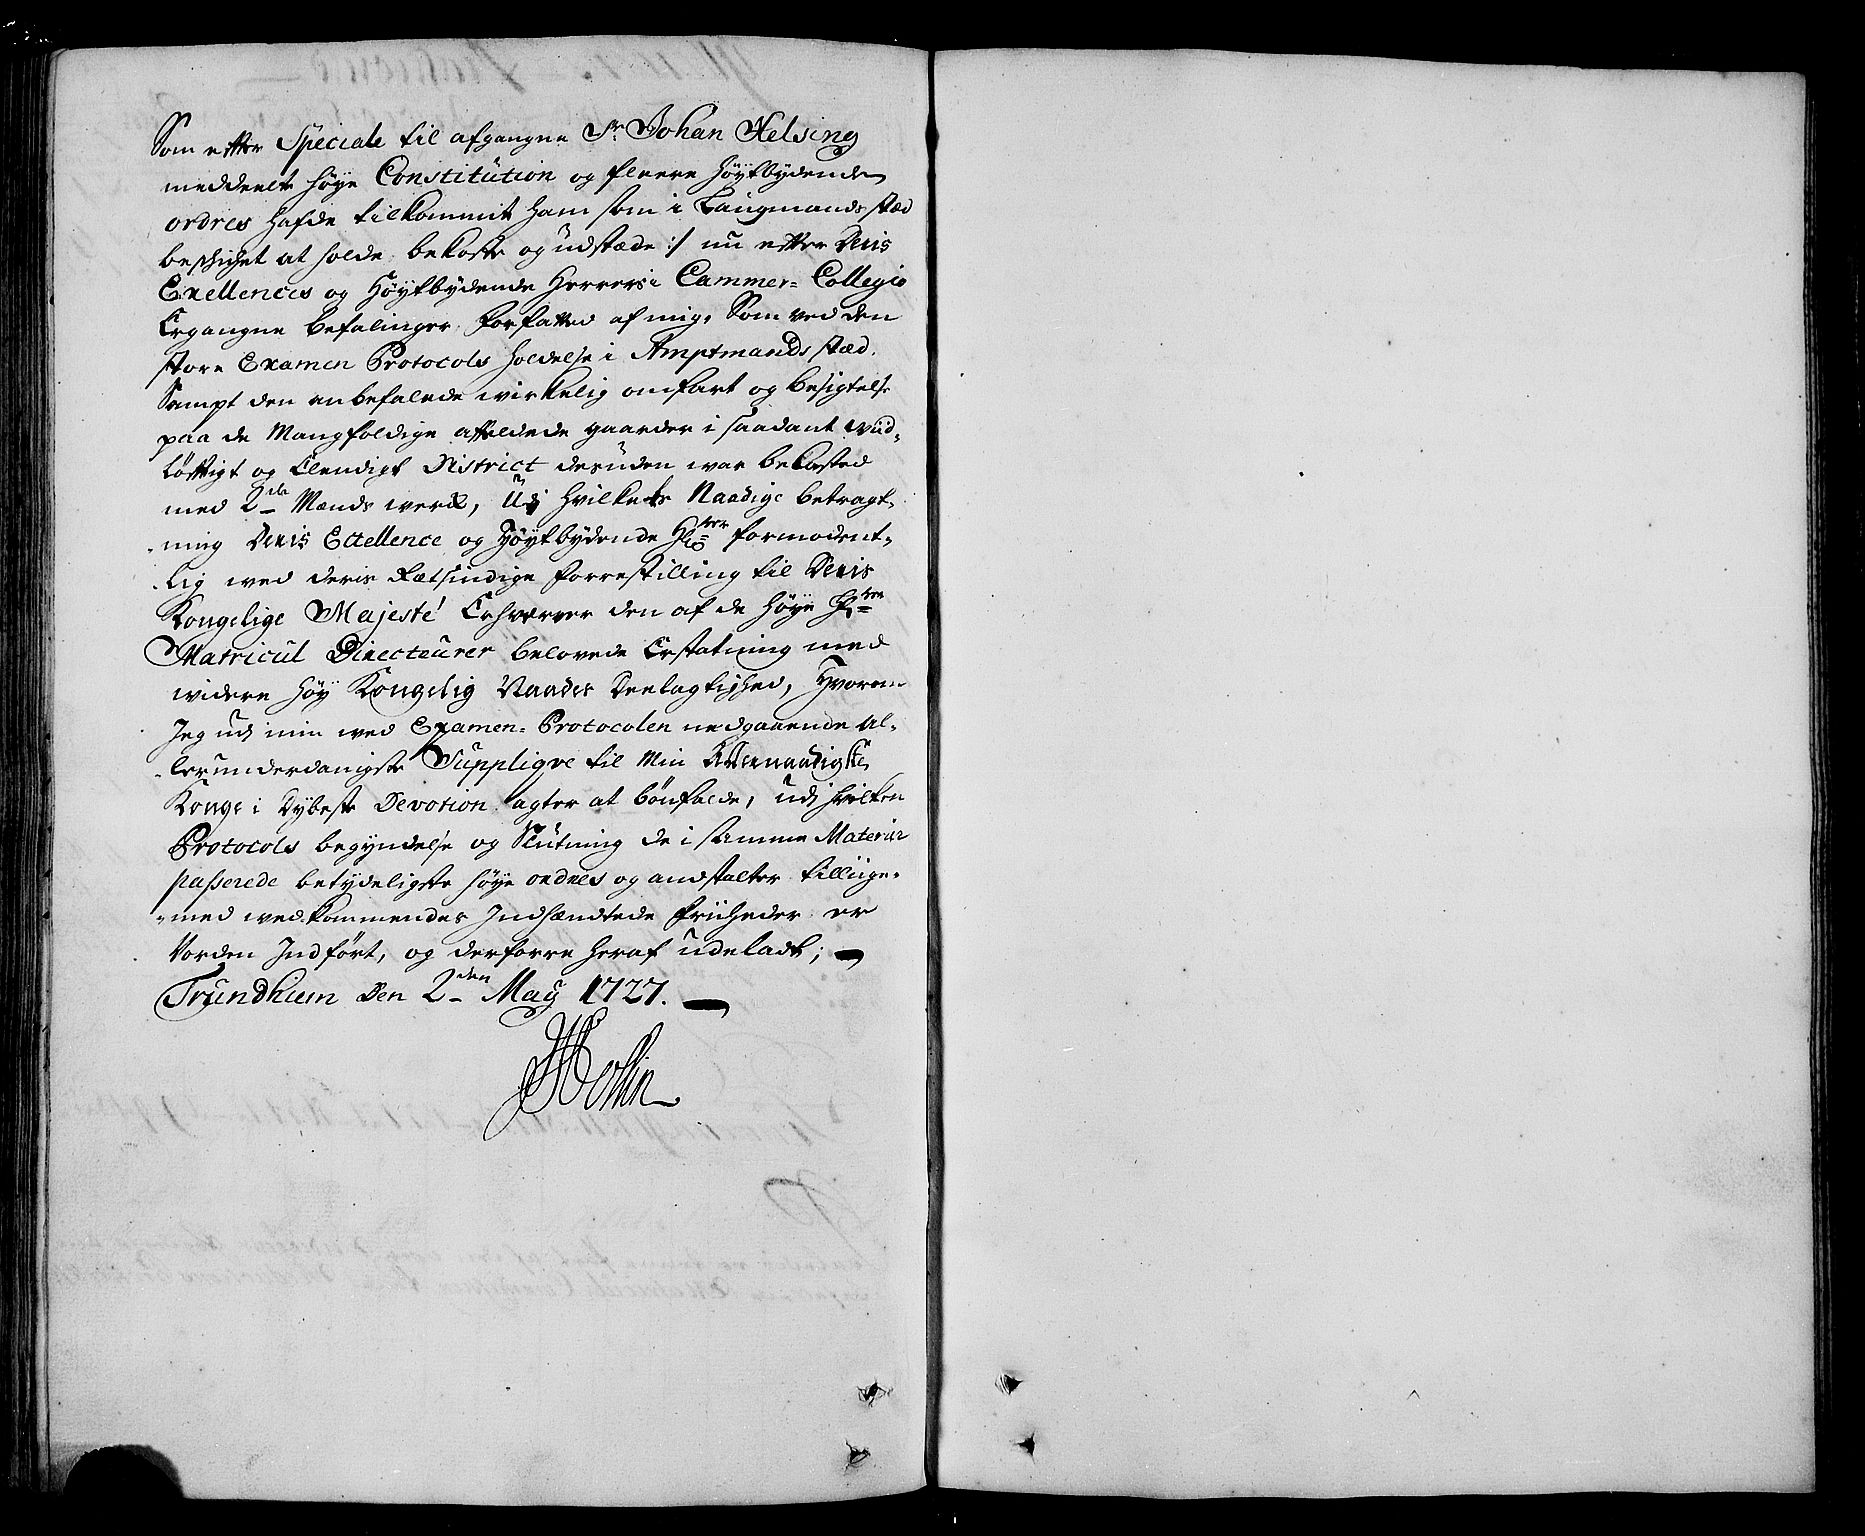 Som efter Speciale til afgangne Sr Johan Helsing
meddeelte høye Constitution og fleere høytbydende
ordres hafde tilkommit ham som i Laugmands stæd
beschichet at holde, bekoste og udstæde :/ nu efter Deris
Exellences og Høytbydende Herrers i Cammer= Collegio
Ergangne befalinger forfatted af mig, Som ved den
store Examen Protocols holdelse i Amptmands stæd,
Sampt den anbefalede wirkelig omfart og besigtelse
paa de Mangfoldige affeldede gaarder i saadant wiid,
løftigt og Elendigt District desuden war bekosted
med 2de Mænds werk, Udj hvilkets Naadige betragt,
ning Deris Ectellence og Høytbydende Hrer formodent,
lig wed deris Rætsindige forrestilling til Deris
Kongelige Majesté Erhverver den af de høye Hrer
Matricul Directeurer belovede Erstatning med
widere høy Kongelig Naades Deelagtighed, Hvorom
Jeg udj min wed Examen= Protocolen nedgaaende al,
lerunderdanigste Suppliqve til Min Allernaadigste
Konge i Dybeste Devotion agter at bønfalde, udj hvilken
Protocols begyndelse og Slutning de i samme Materie
passerede betydeligste høye ordres og andstalter tillige,
med wedkommendes Indsændtede friiheder er
Vorden Indført, og derforre heraf udeladt;
Trundhiem Den 2den May 1727.